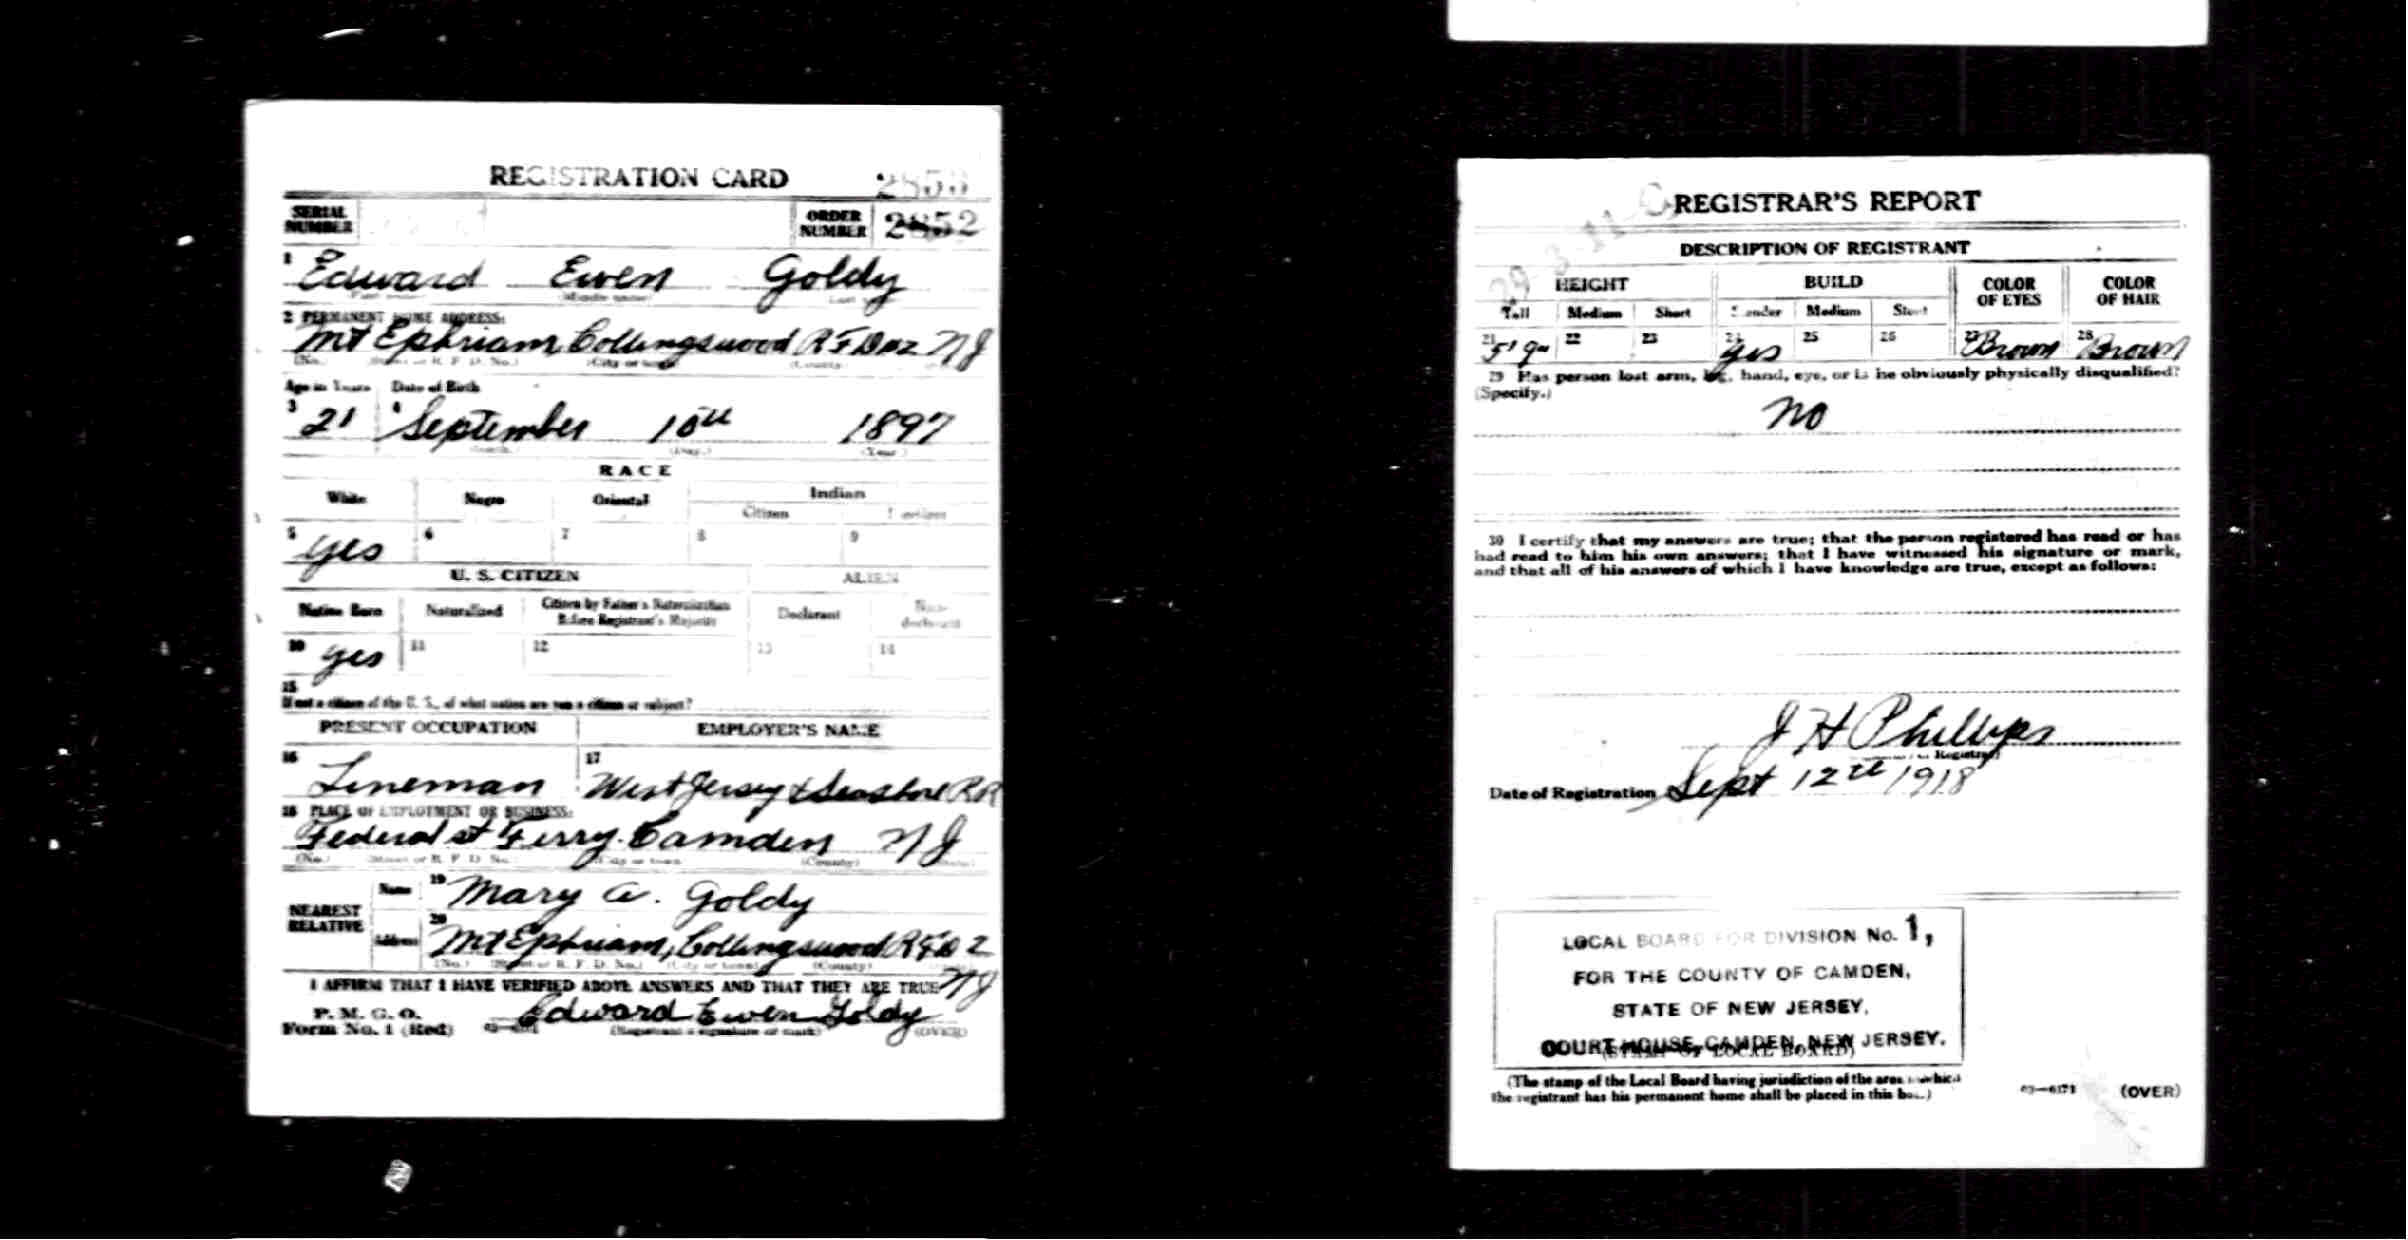 REGISTRATION CARD
SERIAL NUMBER
ORDER NUMBER 2852
1 Edward Ewen Goldy
2 PERMANENT HOME ADDRESS:
Mt Ephriam, Collingswood R F D No 2 N J
(No.) (Street or R. F. D. No.) (City or town) (County)
Age in Years Date of Birth
3 21 4 September 10th 1897
(Month.) (Day.) (Year)
RACE
White Negro Oriental Indian
Citizen
5 yes 6 7 8 9
U. S. CITIZEN ALIEN
Native Born Naturalized Citizen by Father's Naturalization Before Registrant's Majority Declarant Non-declarant
10 yes 11 12 13 14
15
If not a citizen of the U. S., of what nation are you a citizen or subject?
PRESENT OCCUPATION EMPLOYER'S NAME
16 Lineman 17 West Jersey & Seashore RR
18 PLACE OF EMPLOYMENT OR BUSINESS:
Federal st Ferry. Camden N J
(No.) (Street or R. F. D. No.) (City or town) (County) (State)
NEAREST RELATIVE
Name 19 Mary A. Goldy
Address 20 Mt Ephriam, Collingswood R F D 2
(No.) (Street or R. F. D. No.) (City or town) (County)
I AFFIRM THAT I HAVE VERIFIED ABOVE ANSWERS AND THAT THEY ARE TRUE N J
P. M. G. O.
Form No. 1 (Red) Edward Ewen Goldy
(Registrant's signature or mark) (OVER)
REGISTRAR'S REPORT
29-3-11 C
DESCRIPTION OF REGISTRANT
HEIGHT BUILD COLOR OF EYES COLOR OF HAIR
Tall Medium Short Slender Medium Stout
21 5' 9" 22 23 24 yes 25 26 27 Brown 28 Brown
29 Has person lost arm, leg, hand, eye, or is he obviously physically disqualified?
(Specify.)
no
30 I certify that my answers are true; that the person registered has read or has
had read to him his own answers; that I have witnessed his signature or mark,
and that all of his answers of which I have knowledge are true, except as follows:
J H Phillips
Registrar
Date of Registration Sept 12th 1918
LOCAL BOARD FOR DIVISION No. 1,
FOR THE COUNTY OF CAMDEN,
STATE OF NEW JERSEY,
COURT HOUSE, CAMDEN, NEW JERSEY.
(STAMP OF LOCAL BOARD)
(The stamp of the Local Board having jurisdiction of the area in which
the registrant has his permanent home shall be placed in this box.)
03—6171 (OVER)